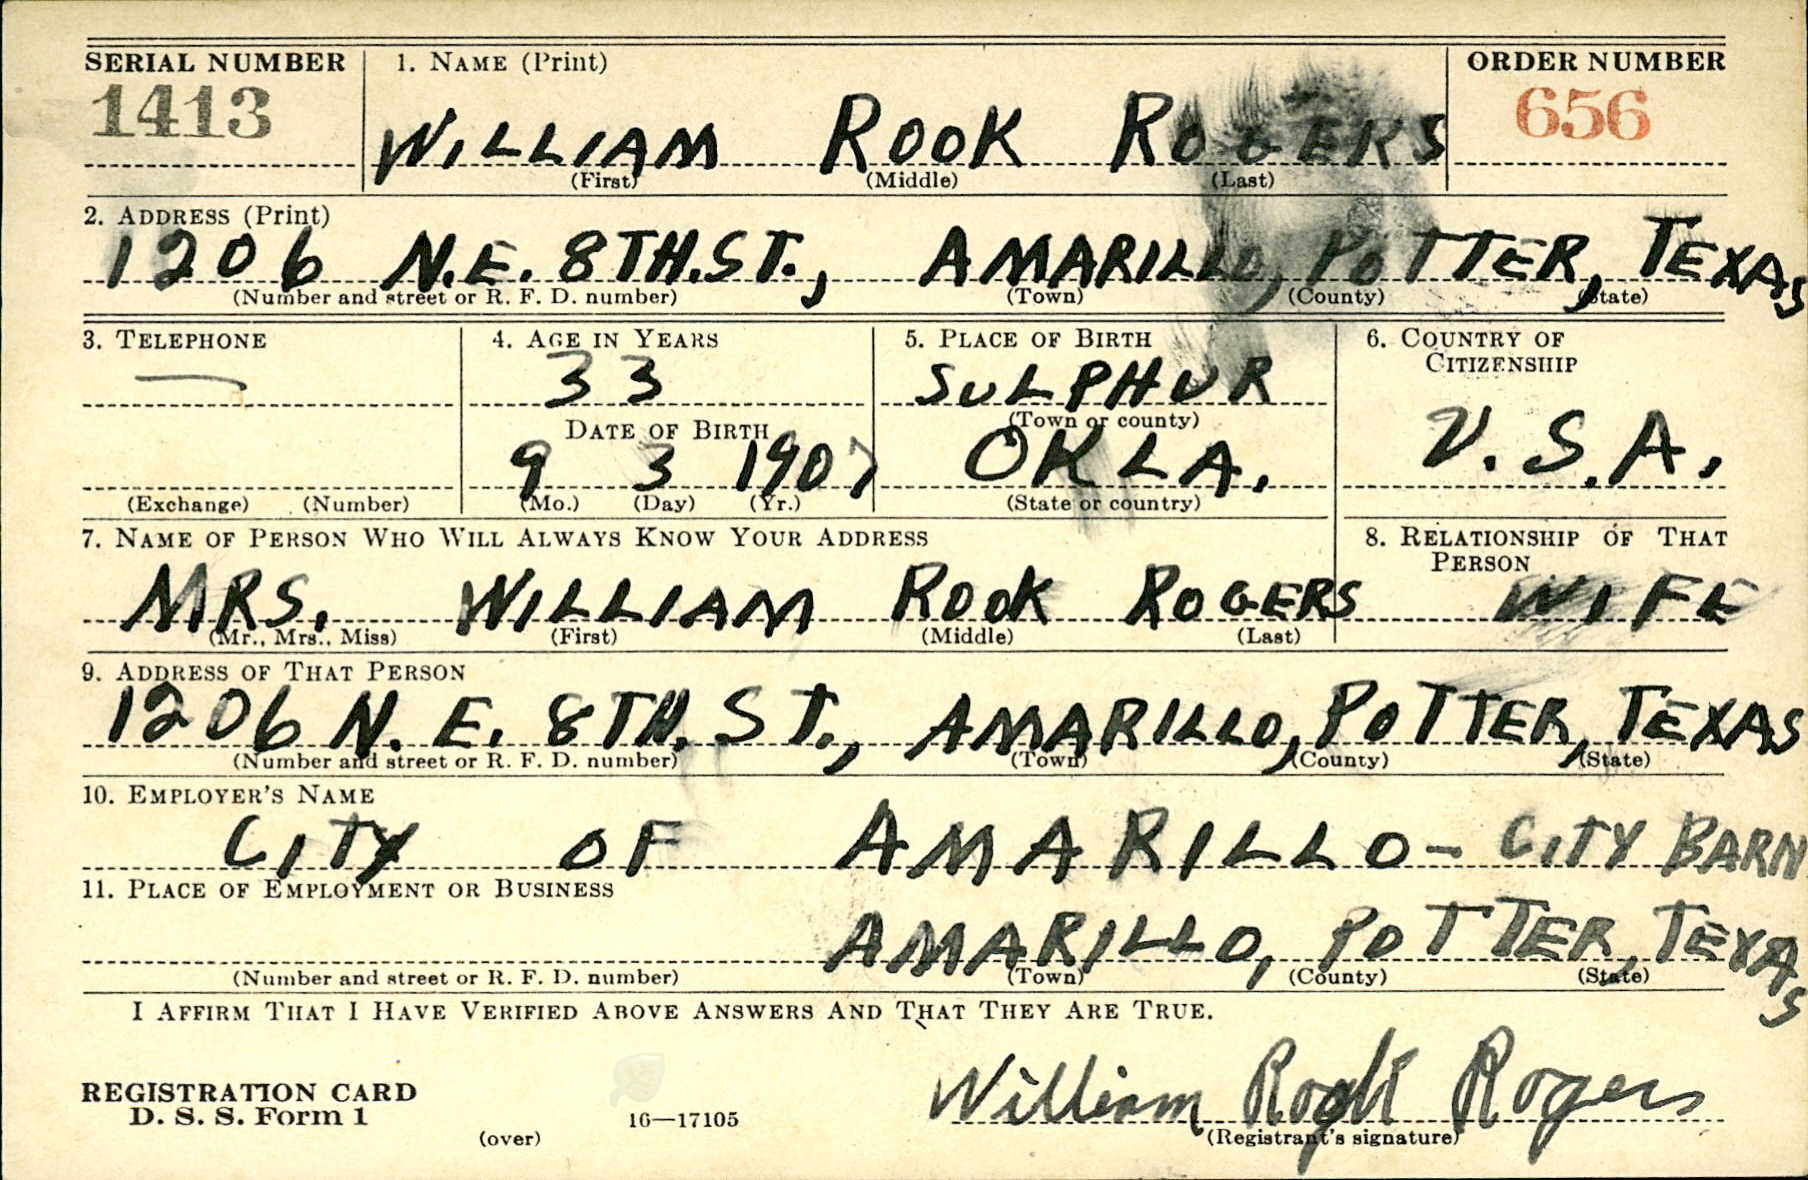 SERIAL NUMBER 1. NAME (Print) ORDER NUMBER
1413 WILLIAM ROOK ROGERS 656
(First) (Middle) (Last)
2. ADDRESS (Print)
1206 N.E. 8TH. ST., AMARILLO, POTTER, TEXAS
(Number and street or R. F. D. number) (Town) (County) (State)
3. TELEPHONE 4. AGE IN YEARS 5. PLACE OF BIRTH 6. COUNTRY OF
CITIZENSHIP
— 33 SULPHUR
(Town or county)
DATE OF BIRTH U.S.A.
9 3 1907 OKLA.
(Exchange) (Number) (Mo.) (Day) (Yr.) (State or country)
7. NAME OF PERSON WHO WILL ALWAYS KNOW YOUR ADDRESS 8. RELATIONSHIP OF THAT
PERSON
MRS. WILLIAM ROOK ROGERS WIFE
(Mr., Mrs., Miss) (First) (Middle) (Last)
9. ADDRESS OF THAT PERSON
1206 N. E. 8TH. ST., AMARILLO, POTTER, TEXAS
(Number and street or R. F. D. number) (Town) (County) (State)
10. EMPLOYER'S NAME
CITY OF AMARILLO - CITY BARN
11. PLACE OF EMPLOYMENT OR BUSINESS
AMARILLO, POTTER, TEXAS
(Number and street or R. F. D. number) (Town) (County) (State)
I AFFIRM THAT I HAVE VERIFIED ABOVE ANSWERS AND THAT THEY ARE TRUE.
William Rook Rogers
REGISTRATION CARD
D. S. S. Form 1 16—17105
(over) (Registrant's signature)